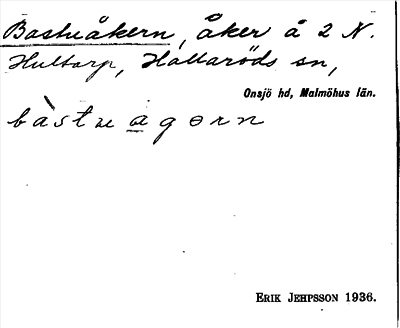 Bastuåkern, åker å 2 N.
Hultarp, Hallaröds sn,
Onsjö hd, Malmöhus län.
bàstuagɵrn
ERIK JEHPSSON 1936.